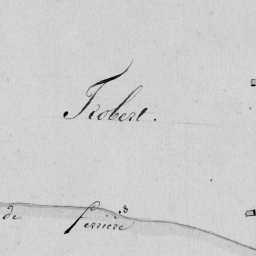 Trobert.
de ferriere